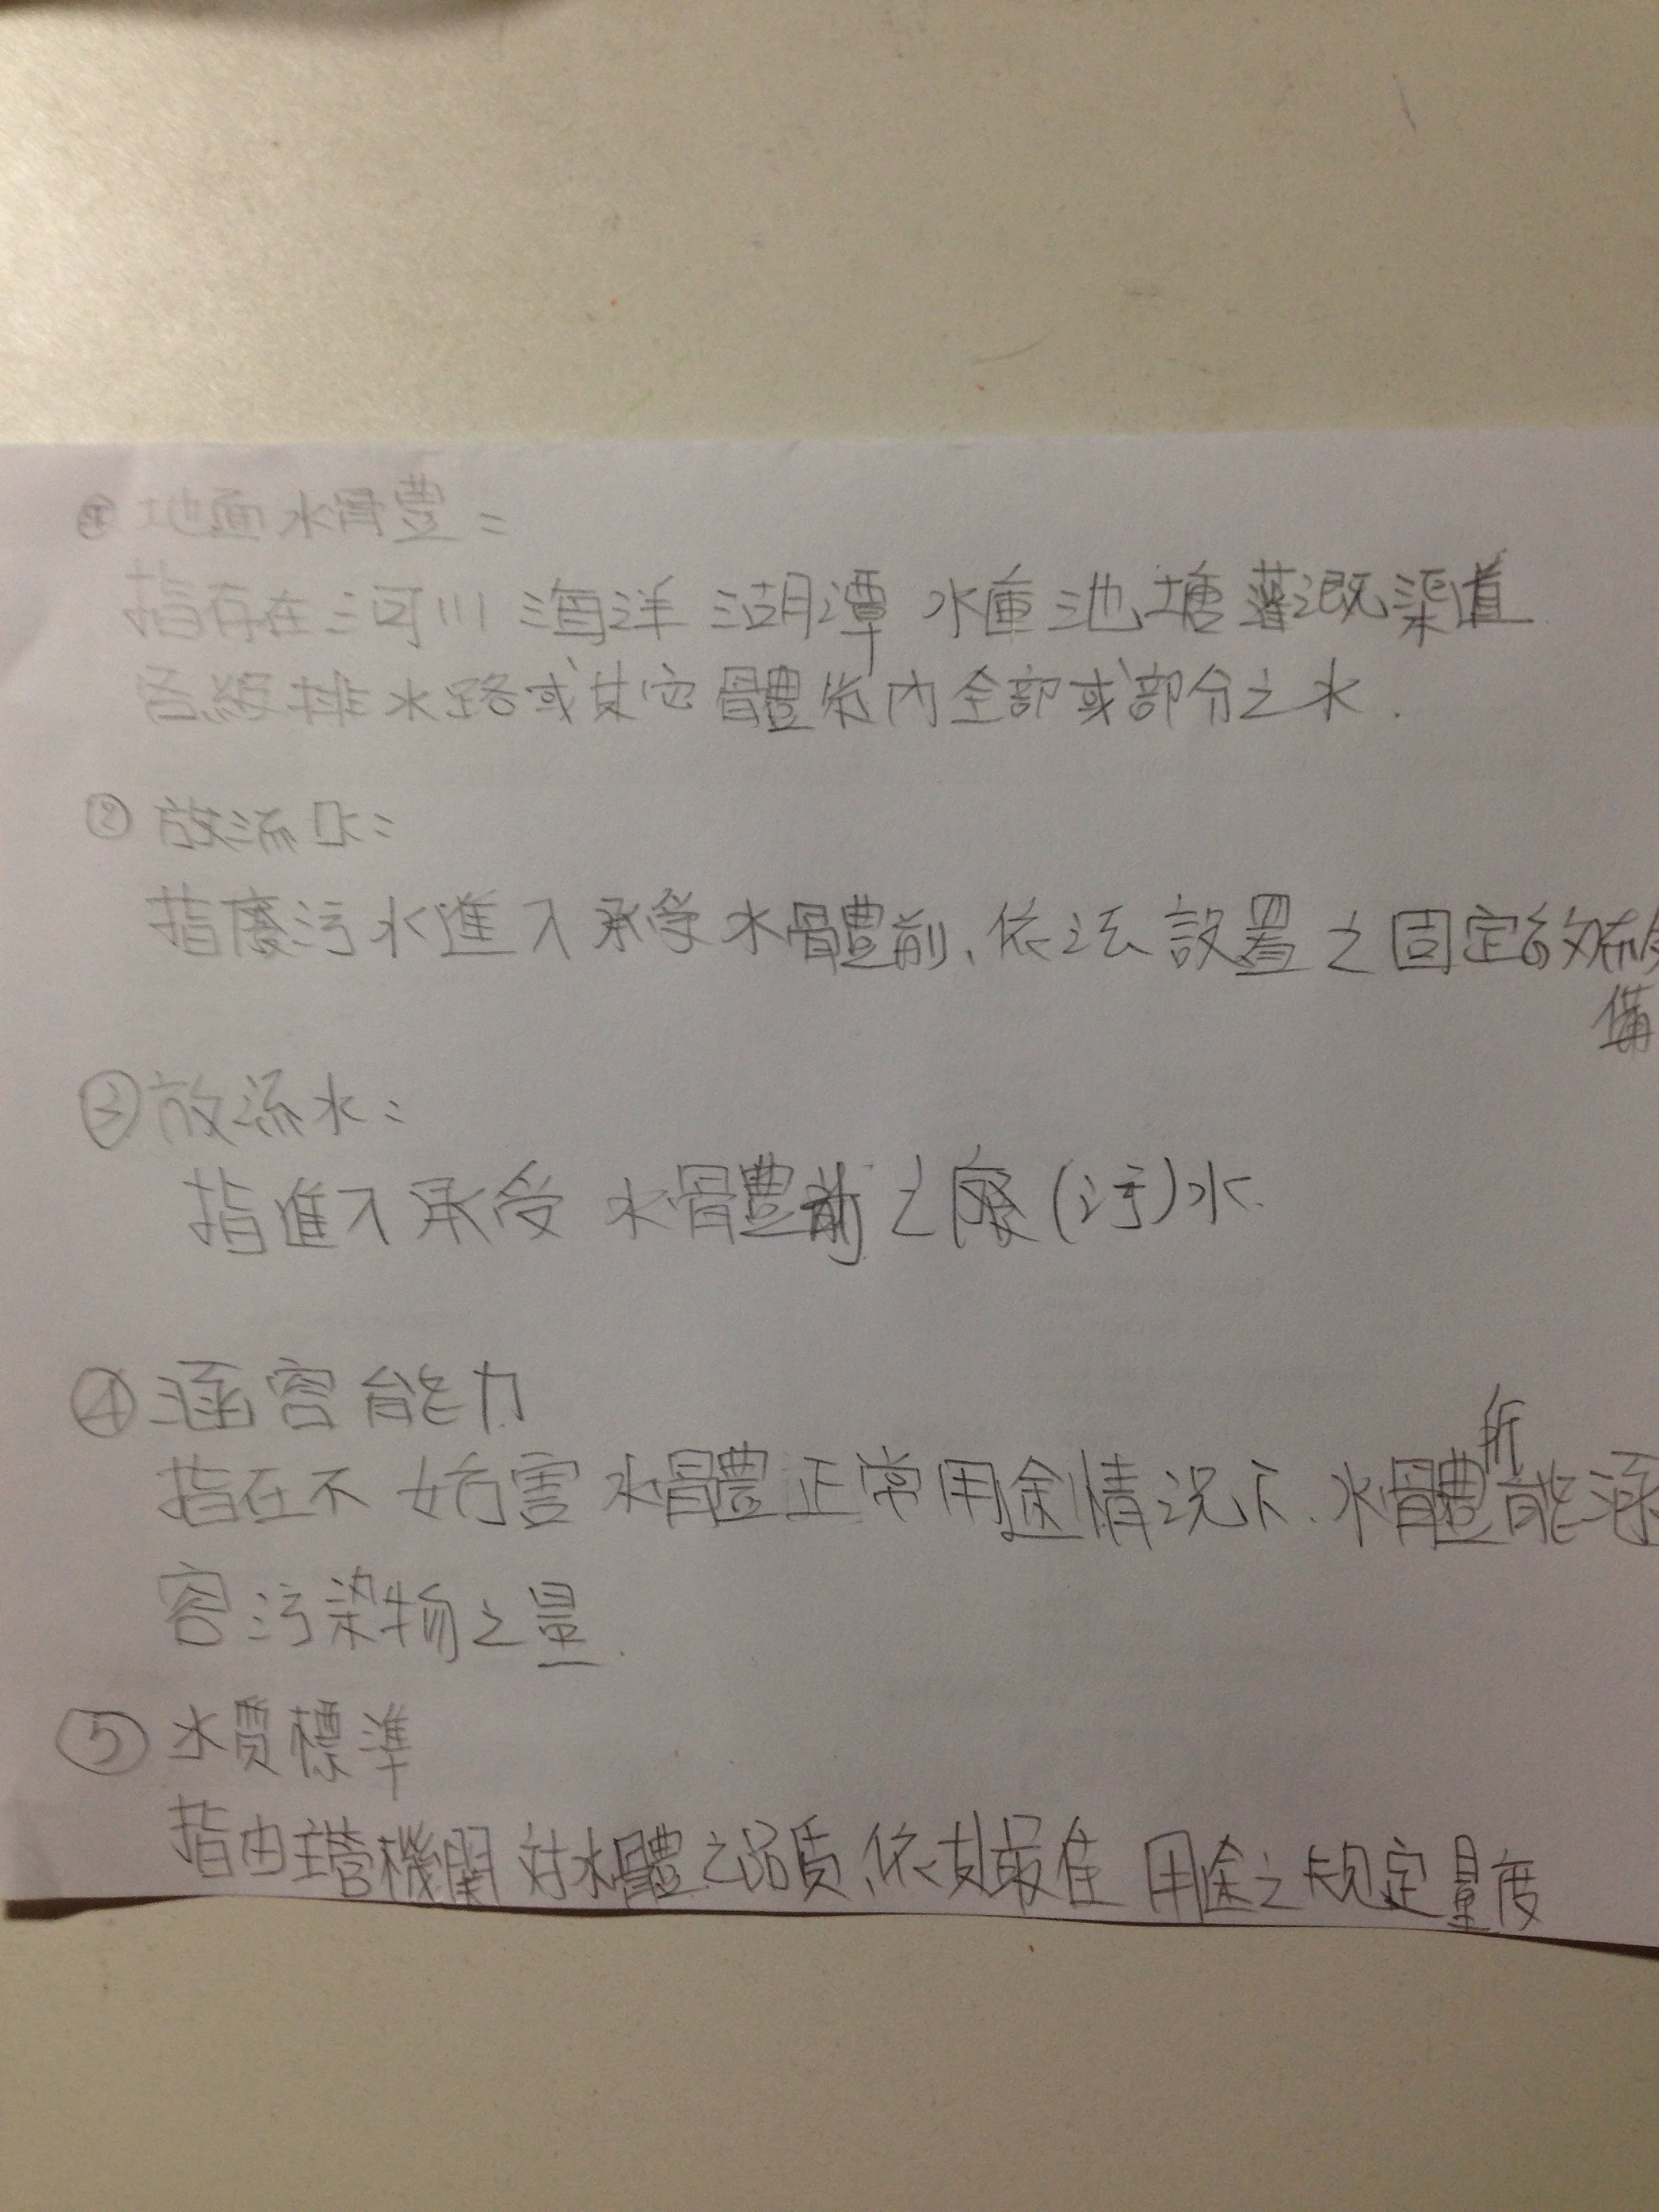 ① 地面水體：
指存在河川 海洋 湖潭 水庫 池塘 灌溉渠道
各級排水路或其它體系內全部或部分之水.
② 放流口：
指廢污水進入承受水體前、依法設置之固定放流設
備
③ 放流水：
指進入承受水體前之廢(污)水.
④ 涵容能力
指在不妨害水體正常用途情況下、水體所能涵
容污染物之量.
⑤ 水質標準
指由主管機關對水體之品質、依其最佳用途之規定量度